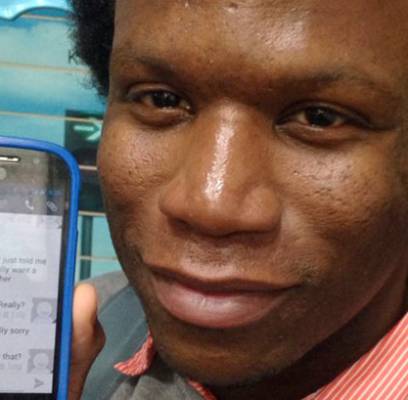 just told me
lly want a
her
Really?
lly sorry
that?